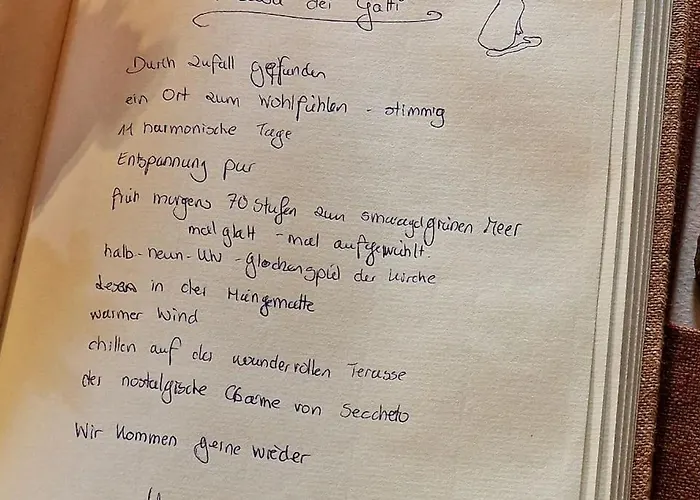 dei Gatti
Durch Zufall gefunden
ein Ort zum Wohlfühlen - stimmig
11 harmonische Tage
Entspannung pur
früh morgens 70 Stufen zum smaragdgrünen Meer
mal glatt - mal aufgewühlt.
halb-neun-Uhr - Glockenspiel der Kirche
lesen in der Hängematte
warmer Wind
chillen auf der wundervollen Terasse
der nostalgische Charme von Seccheto
Wir kommen gerne wieder